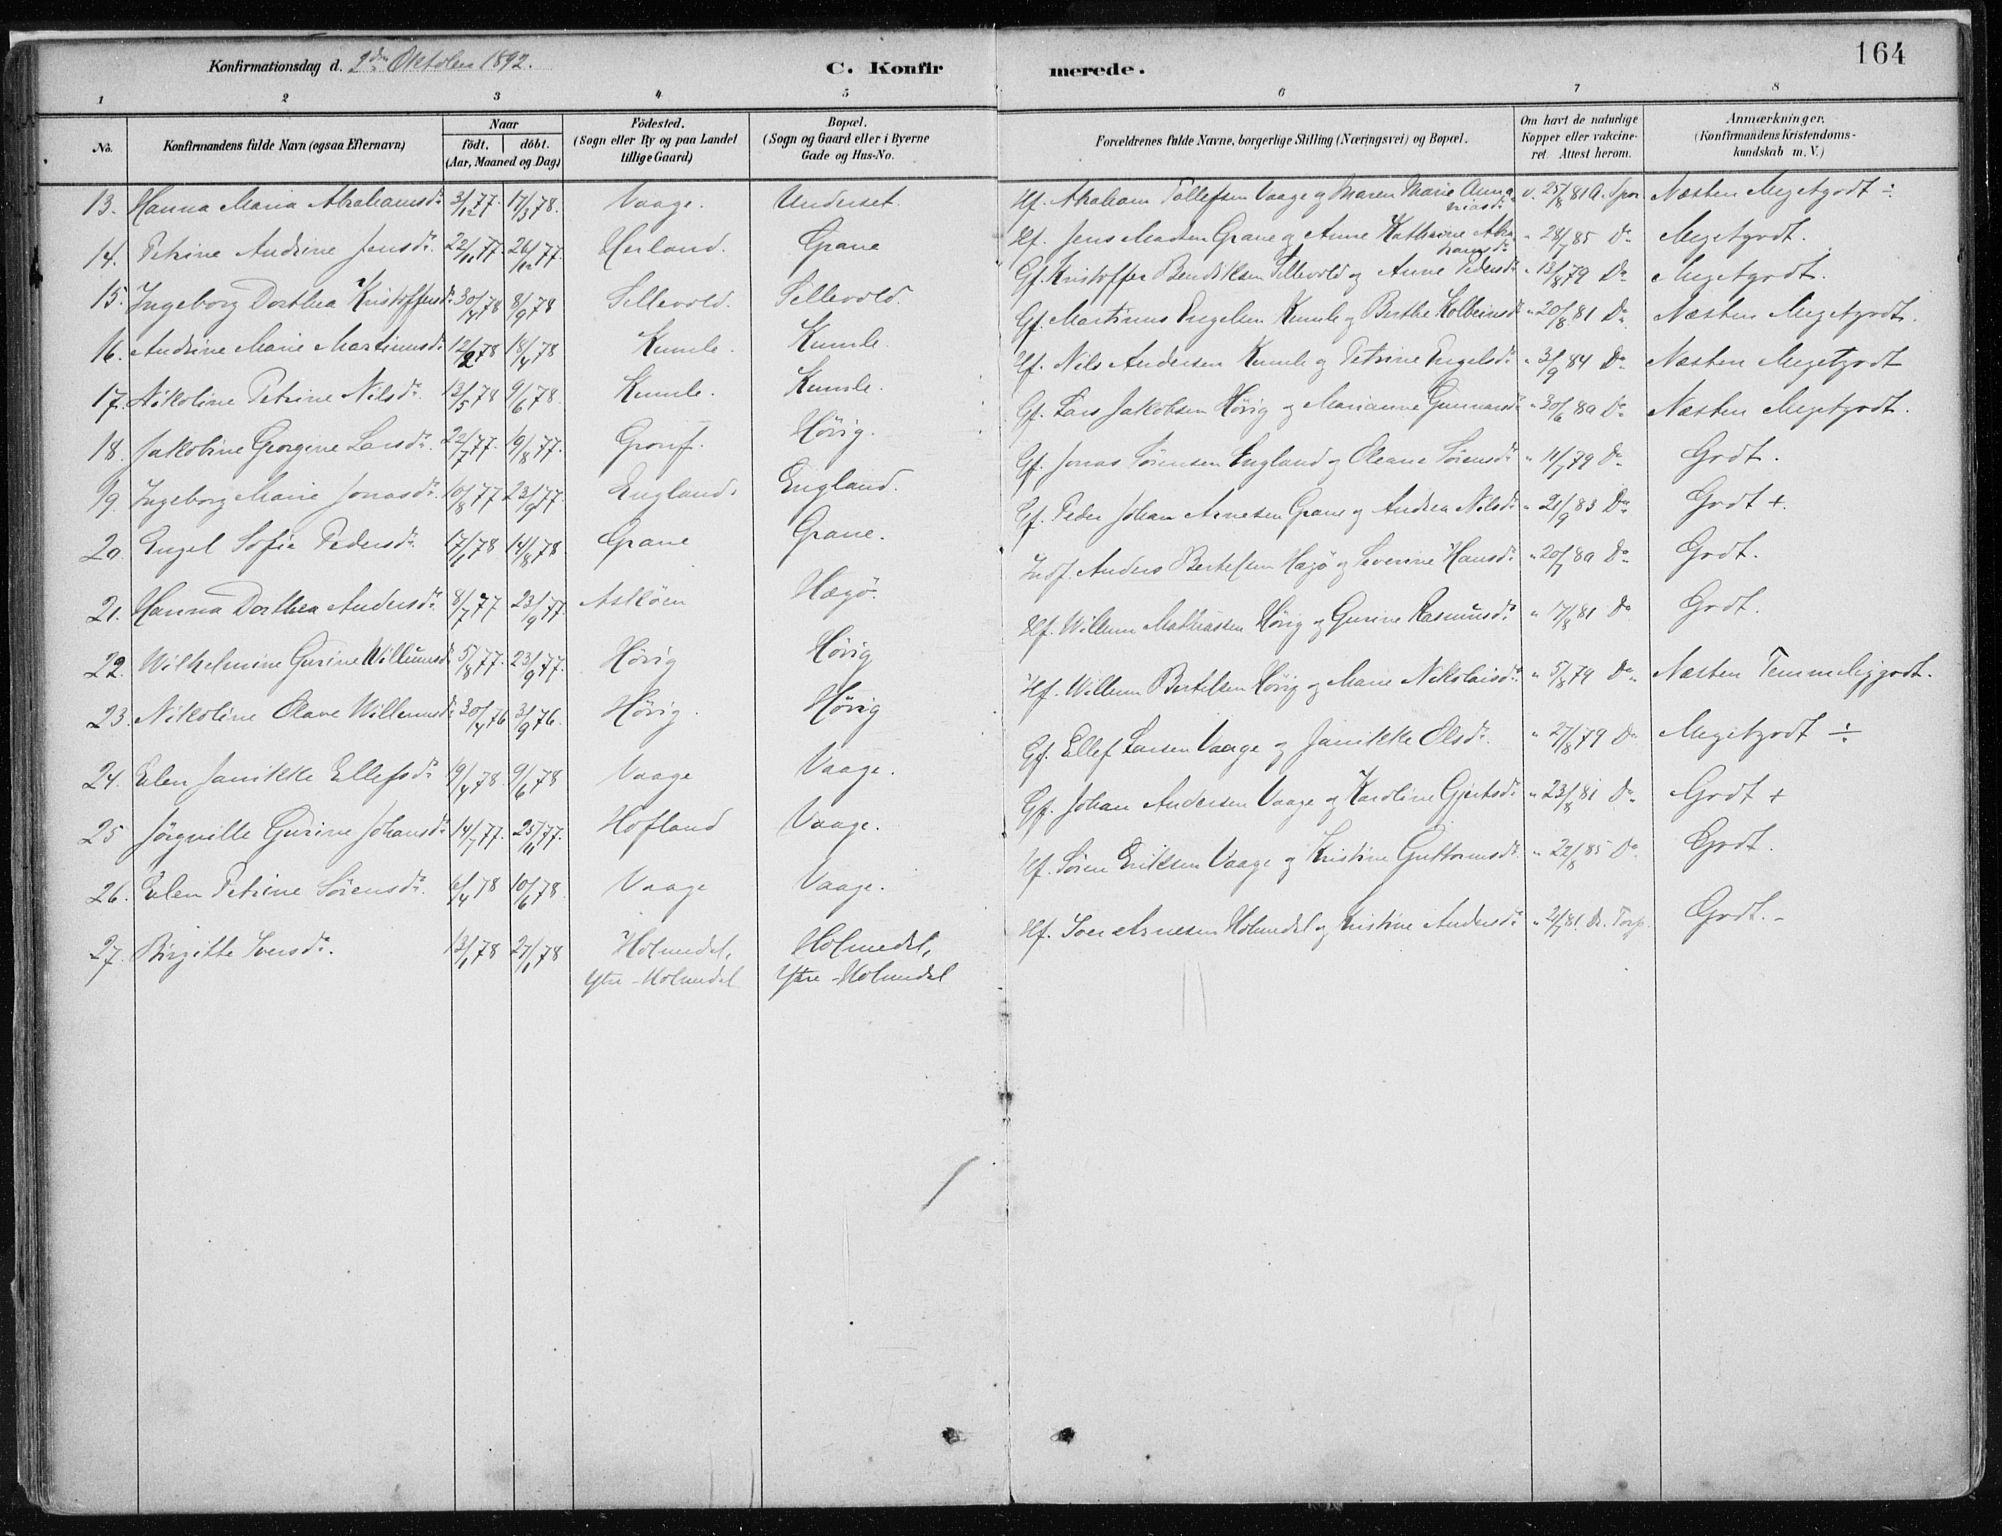 164
Konfirmationsdag d. 2den Oktober 1892.
C. Konfirmerede.
1 2 3 4 5 6 7 8
No.
Konfirmandens fulde Navn (ogsaa Efternavn)
Naar
födt. döbt.
(Aar, Maaned og Dag)
Födested.
(Sogn eller By og paa Landet
tillige Gaard)
Bopæl.
(Sogn og Gaard eller i Byerne
Gade og Hus-No.
Forældrenes fulde Navne, borgerlige Stilling (Næringsvei) og Bopæl.
Om havt de naturlige
Kopper eller vakcine-
ret. Attest herom.
Anmærkninger.
(Konfirmandens Kristendoms-
kundskab m. V.)
13. Hanna Maria Abrahamsdr. 3/12 77 17/3 78. Vaage. Underset. Hf. Abraham Tollefsen Vaage og Maren Marie Anna v. 25/8 81 Næsten Megetgodt ÷
niasdr.
14. Petrine Andrine Jensdr. 22/11 77 26/12 77. Herland. Grane Hf. Jens Madsen Grane og Anne Kathrine Abra " 28/7 85 Do Megetgodt.
hamsdr.
15. Ingeborg Dorthea Kristoffersdr. 30/4 78 8/9 78 Sellevold. Sellevold. Gf. Kristoffer Bendiksen Sellevold og Anne Pedersdr. " 13/8 79 Do Megetgodt.
16. Andrine Marie Martinusdr. 12/2 78 18/4 78 Kumle. Kumle. Gf. Martinus Engelsen Kumle og Berthe Kolbeinsdr. " 20/8 81 Do Næsten Megetgodt.
17. Nikoline Petrine Nilsdr. 13/5 78 9/6 78. Kumle. Kumle. Hf. Nils Andersen Kumle og Petrine Engelsdr. " 3/9 84 Do Næsten Megetgodt
18. Jakobine Georgine Larsdr. 22/7 77. 19/8 77. Hövig. Gf. Lars Jakobsen Hövig og Marianne Gunnarsdr. " 30/6 80 Do Næsten Megetgodt.
19. Ingeborg Marie Jonasdr. 10/8 77 23/9 77. England. England. Gf. Jonas Sörensen England og Oleane Sörensdr. " 11/7 79 Do Godt.
20. Engel Sofie Pedersdr. 17/1 78 14/8 78 Grane Grane. Gf. Peder Johan Arnesen Grane og Andrea Nilsdr. " 21/9 83 Do Godt +.
21. Hanna Dorthea Andersdr. 8/7 77 23/9 77. Asköen Hægö. Indf. Anders Bertelsen Hægö og Severine Hansdr. " 20/7 80 Do Godt.
22. Wilhelmine Gurine Willumsdr. 5/8 77. 23/9 77. Hövig Hövig Hf. Willum Mathiassen Hövig og Gurine Rasmusdr. " 17/8 81 Do Godt.
23. Nikoline Olave Willumsdr. 30/4 76 3/9 76. Hövig. Hövig Hf. Willum Bertelsen Hövig og Marie Nikolaisdr. " 5/8 79 Do Næsten Temmeliggodt.
24. Elen Janikke Ellefsdr. 19/4 78. 9/6 78 Vaage Vaage. Gf. Ellef Larsen Vaage og Janikke Olsdr. " 27/8 79 Do Megetgodt ÷
25 Jörgville Gurine Johansdr. 14/7 77. 25/11 77. Hofland Vaage. Gf. Johan Andersen Vaage og Karoline Gjertsdr. " 23/8 81 Do Godt +
26. Elen Petrine Sörensdr. 6/4 78 10/6 78. Vaage Vaage. Hf. Sören Eriksen Vaage og Kristine Guttormsdr. " 22/8 85 Do Godt.
27. Birgitte Iversdr. 13/1 78 27/1 78 Holmedal, Holmedal, Hf. Iver Arnesen Holmedal og Kristine Andersdr. " 2/7 81. Dr. Torp. Godt. -
Ytre-Holmedal Ytre-Holmedal